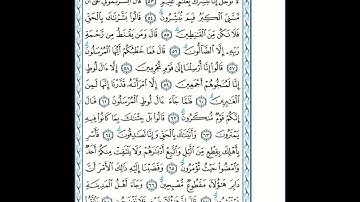 لَا تَوْجَلْ إِنَّا نُبَشِّرُكَ بِغُلَٰمٍ عَلِيمٍ ٥٣ قَالَ أَبَشَّرْتُمُونِى عَلَىٰٓ أَن
مَّسَّنِىَ ٱلْكِبَرُ فَبِمَ تُبَشِّرُونَ ٥٤ قَالُوا۟ بَشَّرْنَٰكَ بِٱلْحَقِّ
فَلَا تَكُن مِّنَ ٱلْقَٰنِطِينَ ٥٥ قَالَ وَمَن يَقْنَطُ مِن رَّحْمَةِ
رَبِّهِۦٓ إِلَّا ٱلضَّآلُّونَ ٥٦ قَالَ فَمَا خَطْبُكُمْ أَيُّهَا ٱلْمُرْسَلُونَ
٥٧ قَالُوٓا۟ إِنَّآ أُرْسِلْنَآ إِلَىٰ قَوْمٍ مُّجْرِمِينَ ٥٨ إِلَّآ ءَالَ لُوطٍ
إِنَّا لَمُنَجُّوهُمْ أَجْمَعِينَ ٥٩ إِلَّا ٱمْرَأَتَهُۥ قَدَّرْنَآ إِنَّهَا لَمِنَ
ٱلْغَٰبِرِينَ ٦٠ فَلَمَّا جَآءَ ءَالَ لُوطٍ ٱلْمُرْسَلُونَ ٦١ قَالَ
إِنَّكُمْ قَوْمٌ مُّنكَرُونَ ٦٢ قَالُوا۟ بَلْ جِئْنَٰكَ بِمَا كَانُوا۟ فِيهِ
يَمْتَرُونَ ٦٣ وَأَتَيْنَٰكَ بِٱلْحَقِّ وَإِنَّا لَصَٰدِقُونَ ٦٤ فَأَسْرِ
بِأَهْلِكَ بِقِطْعٍ مِّنَ ٱلَّيْلِ وَٱتَّبِعْ أَدْبَٰرَهُمْ وَلَا يَلْتَفِتْ مِنكُمْ أَحَدٌ
وَٱمْضُوا۟ حَيْثُ تُؤْمَرُونَ ٦٥ وَقَضَيْنَآ إِلَيْهِ ذَٰلِكَ ٱلْأَمْرَ أَنَّ
دَابِرَ هَٰٓؤُلَآءِ مَقْطُوعٌ مُّصْبِحِينَ ٦٦ وَجَآءَ أَهْلُ ٱلْمَدِينَةِ